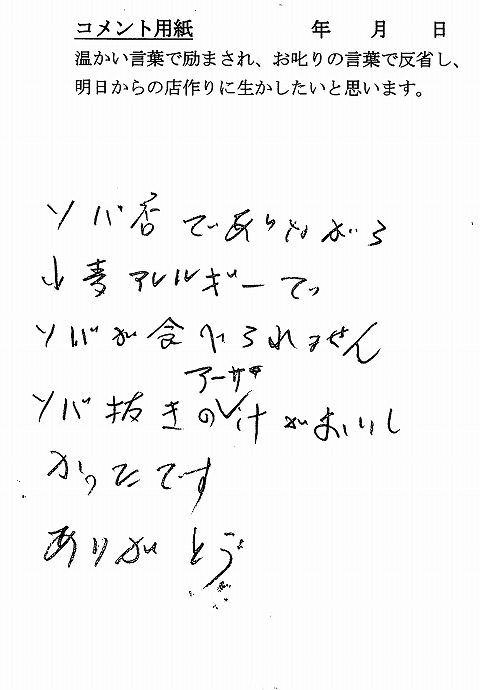 コメント用紙 年 月 日
温かい言葉で励まされ、お叱りの言葉で反省し、
明日からの店作りに生かしたいと思います。
ソバ香でありながら
小麦アレルギーで
ソバが食べられません
アーサ
ソバ抜きの汁がおいし
かったです
ありがとう